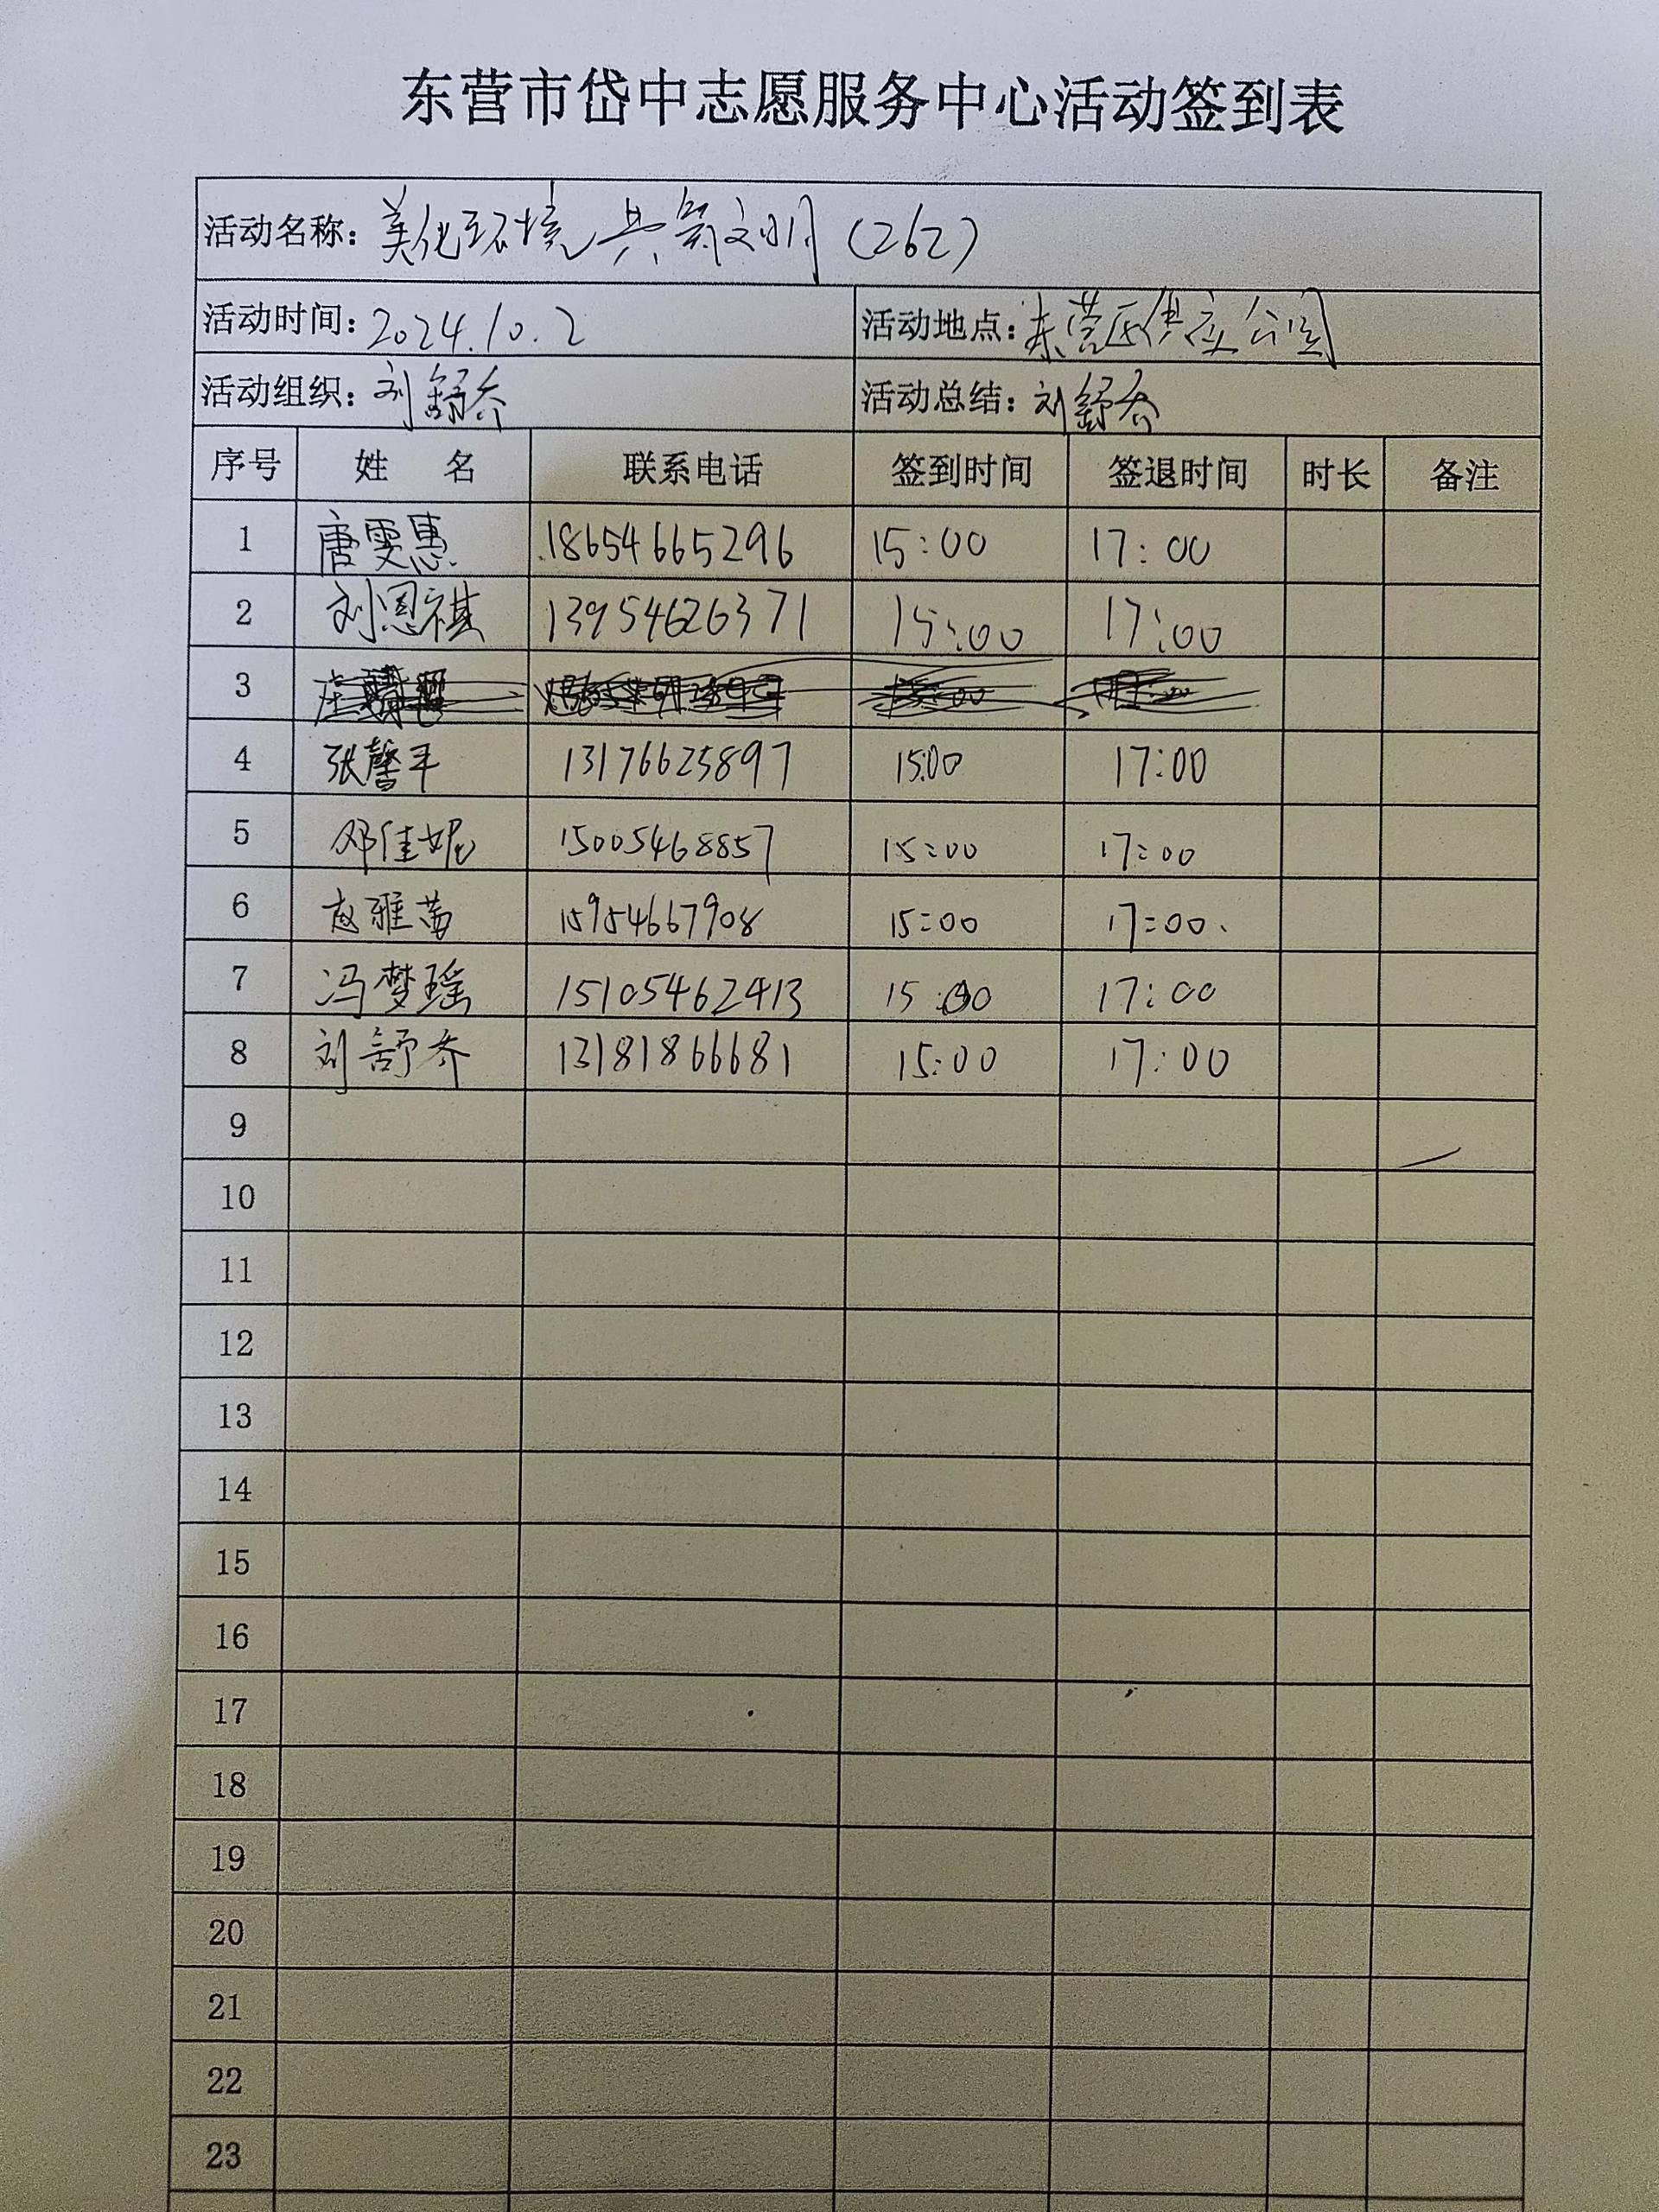 东营市岱中志愿服务中心活动签到表
活动名称：美化环境 共筑文明（262）
活动时间：2024.10.2 活动地点：东营区供应公司
活动组织：刘舒乔 活动总结：刘舒乔
序号 姓 名 联系电话 签到时间 签退时间 时长 备注
1 唐雯惠 18654665296 15:00 17:00
2 刘恩祺 13954626371 15:00 17:00
3
4 张馨平 13176625897 15:00 17:00
5 邓佳妮 15005468857 15:00 17:00
6 赵雅茜 15954667908 15:00 17:00
7 冯梦瑶 15105462413 15:00 17:00
8 刘舒乔 13181866681 15:00 17:00
9
10
11
12
13
14
15
16
17
18
19
20
21
22
23